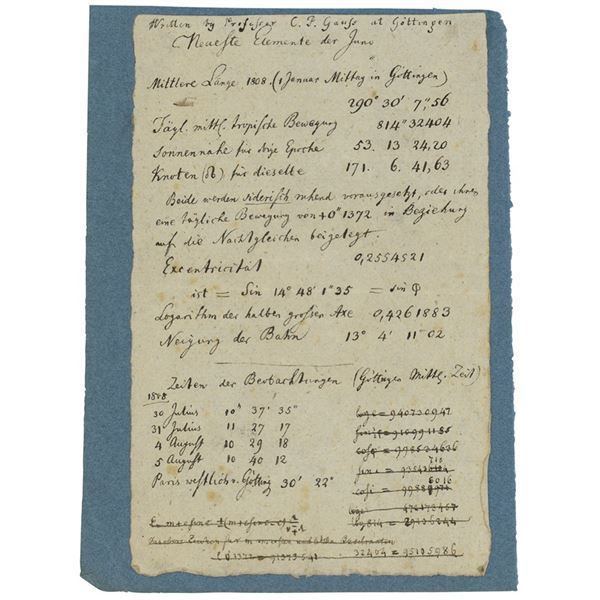 Written by Professor C. F. Gauss at Göttingen
Neueste Elemente der Juno
Mittlere Länge 1808. (1 Januar Mittag in Göttingen)
290° 30' 7",56
Tägl. mittl. tropische Bewegung 814" 32404
Sonnennähe für obige Epoche 53. 13 24,20
Knoten (☊) für dieselbe 171. 6. 41,63
Beide werden siderisch ruhend vorausgesetzt, oder ihnen
eine tägliche Bewegung von +0" 1372 in Beziehung
auf die Nachtgleichen beigelegt.
Excentricität 0,2554521
ist = Sin 14° 48' 1" 35 = sin φ
Logarithm der halben grossen Axe 0,4261883
Neigung der Bahn 13° 4' 11" 02
Zeiten der Beobachtungen (Göttingen Mittl. Zeit)
1808
30 Julius 10h 37' 35"
31 Julius 11 27 17
4 August 10 29 18
5 August 10 40 12
Paris westlich v. Götting 30' 22"
log e = 940730947
cosφ = 998534636
sin i =
cos i =
log 814 =
32404 = 95105986